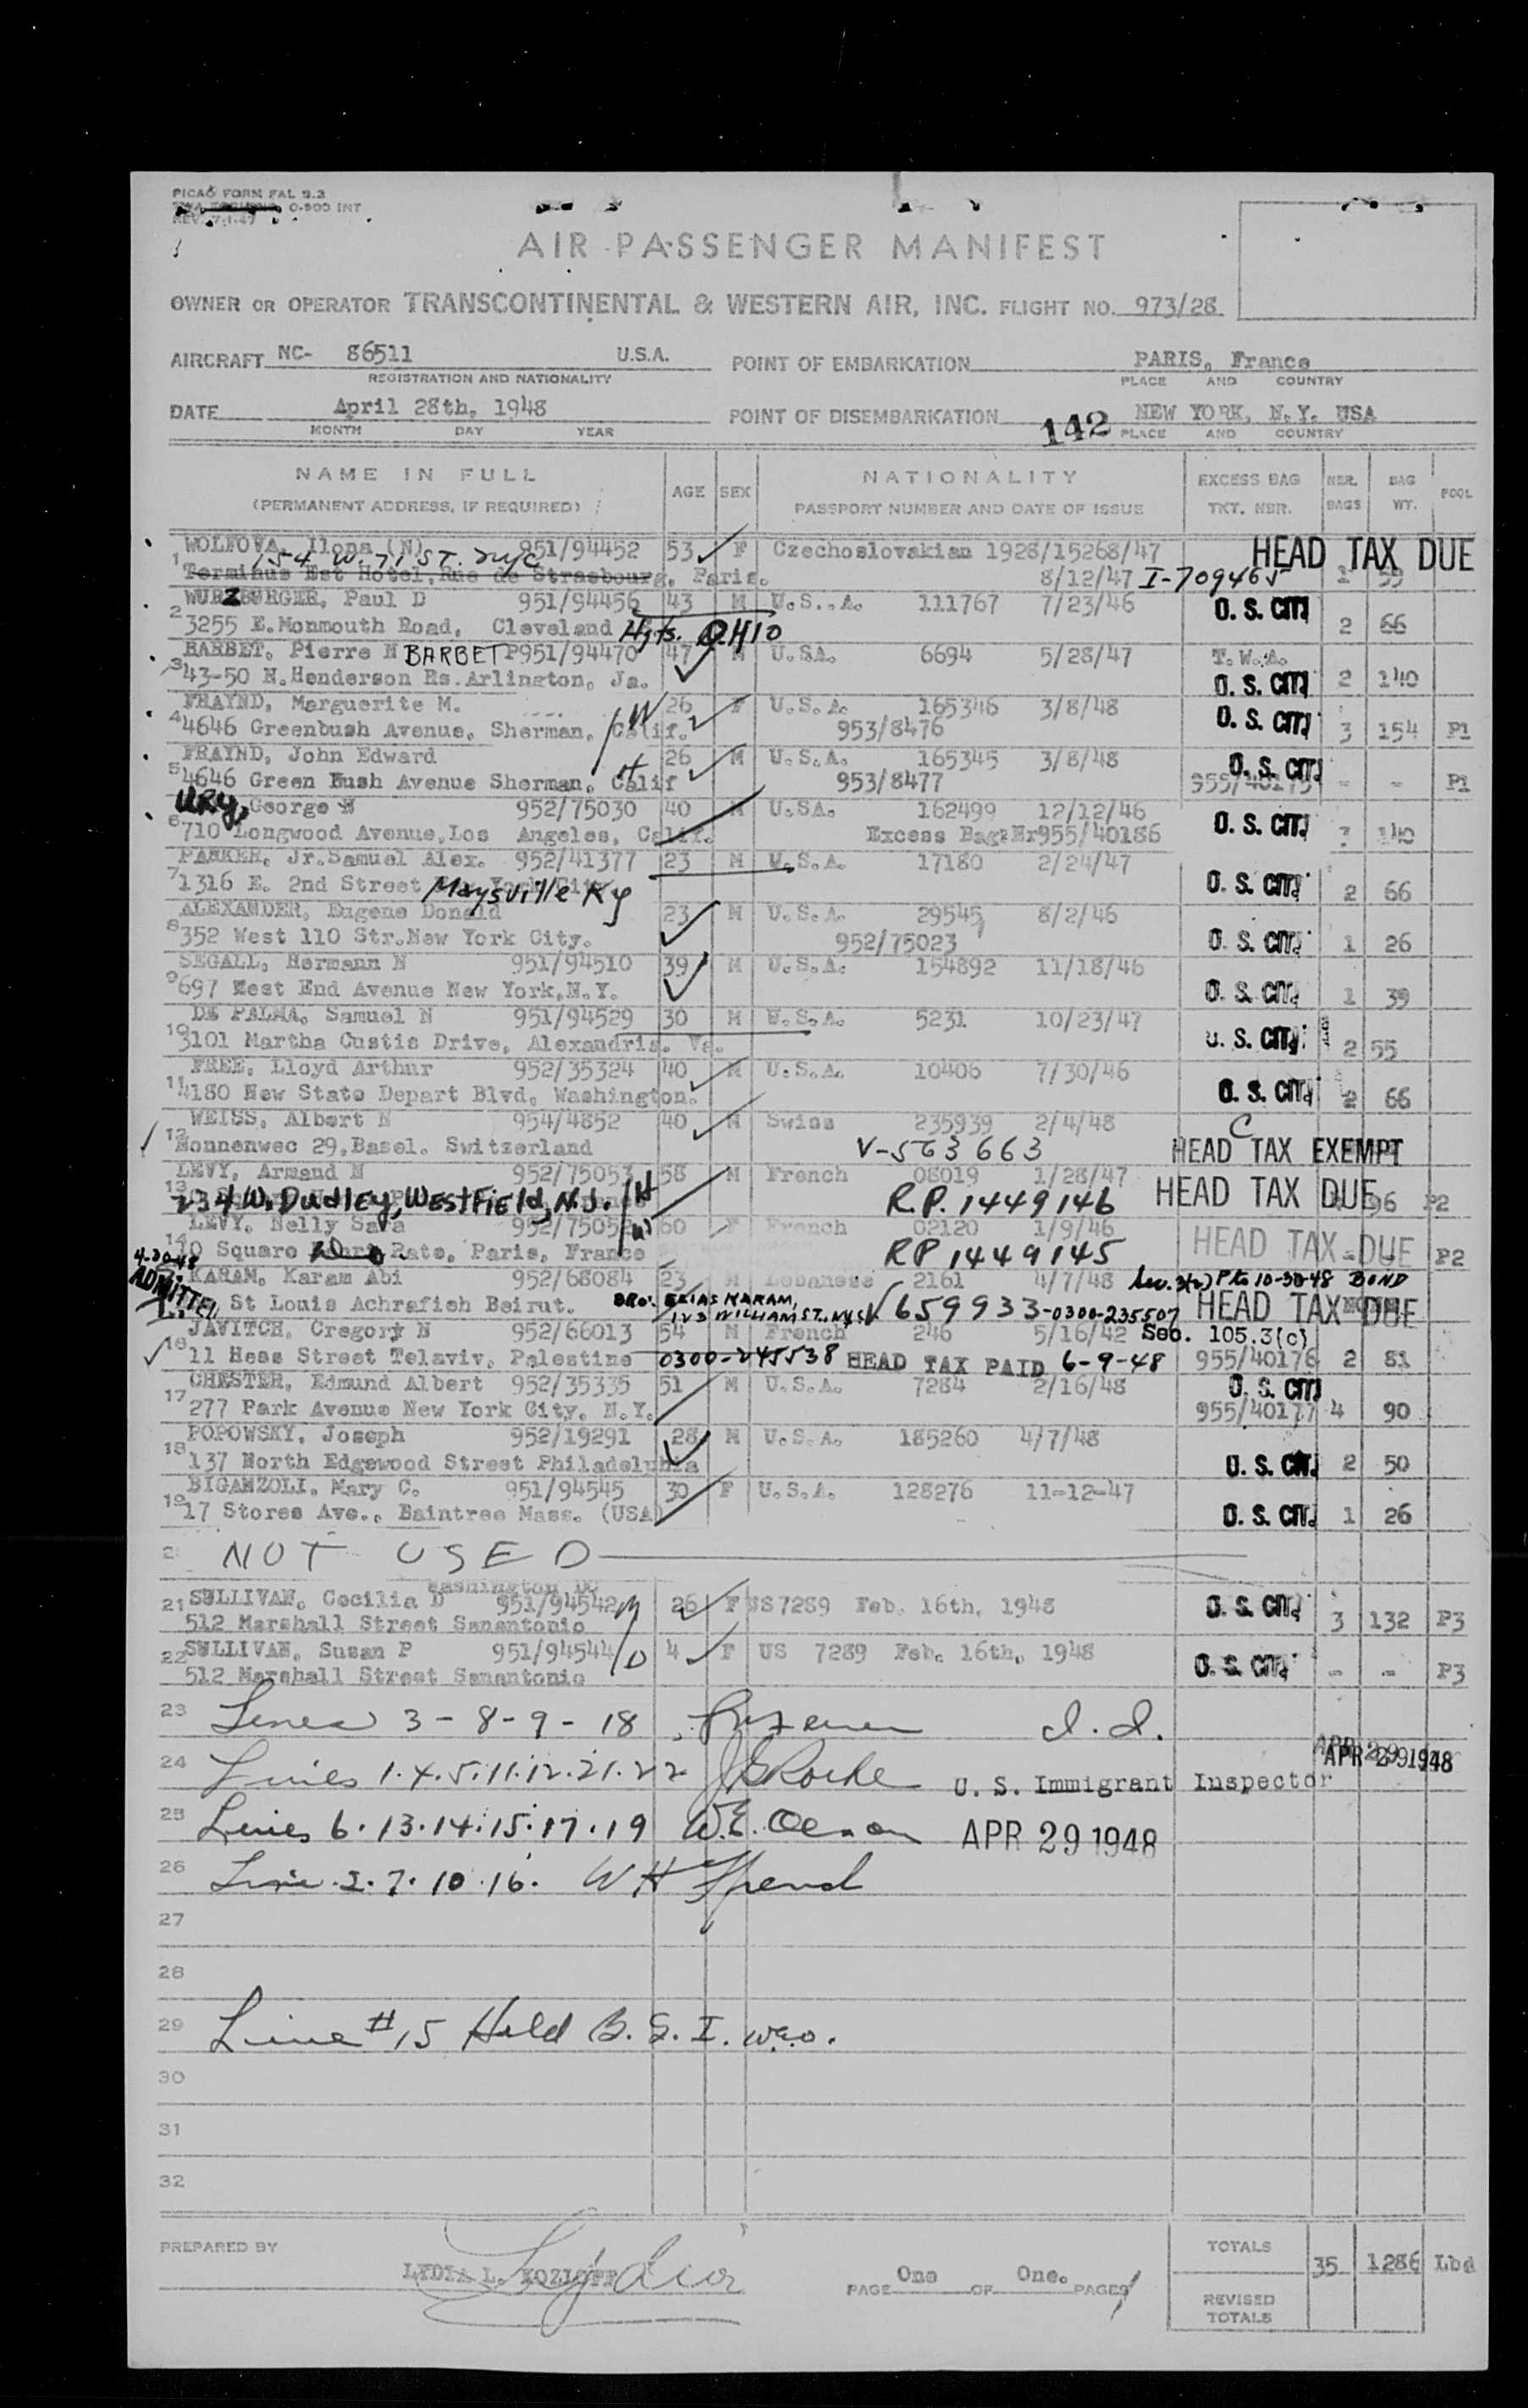 PICAO FORM FAL 9.3
0-900 INT
REV. 7-1-47
AIR PASSENGER MANIFEST
OWNER OR OPERATOR TRANSCONTINENTAL & WESTERN AIR, INC. FLIGHT NO. 973/28
AIRCRAFT NC- 86511 U.S.A. POINT OF EMBARKATION PARIS, France
REGISTRATION AND NATIONALITY PLACE AND COUNTRY
DATE April 28th, 1948 POINT OF DISEMBARKATION 142 NEW YORK, N.Y. USA
MONTH DAY YEAR PLACE AND COUNTRY
NAME IN FULL AGE SEX NATIONALITY EXCESS BAG NBR. BAG POOL
(PERMANENT ADDRESS, IF REQUIRED) PASSPORT NUMBER AND DATE OF ISSUE TKT. NBR. BAGS WT.
WOLFOVA, Ilona (N) 951/94452 53 F Czechoslovakian 1928/15268/47 HEAD TAX DUE
154 W. 71 ST. NYC
1 Terminus Est Hotel, Rue de Strasbourg, Paris. 8/12/47 I-709465 1 59
WURZBURGER, Paul D 951/94456 43 M U.S..A. 111767 7/23/46 U.S. CIT.
2 3255 E.Monmouth Road, Cleveland Hgts. OHIO 2 66
BARBET, Pierre N BARBET P951/94470 47 M U.SA. 6694 5/28/47 T.W.A.
3 43-50 N.Henderson Rs.Arlington, Ja. U.S. CIT. 2 140
FRAYND, Marguerite M. 26 F U.S.A. 165346 3/8/48 U.S. CIT.
4 4646 Greenbush Avenue, Sherman, Calif. W 953/8476 3 154 P1
FRAYND, John Edward 26 M U.S.A. 165345 3/8/48 U.S. CIT.
5 4646 Green Bush Avenue Sherman, Calif H 953/8477 955/40175 - - P1
URY, George N 952/75030 40 M U.SA. 162499 12/12/46 U.S. CIT.
6 710 Longwood Avenue, Los Angeles, Calif. Excess Bag:Nr955/40186 140
PARKER, Jr.Samuel Alex. 952/41377 23 M U.S.A. 17180 2/24/47
7 1316 E. 2nd Street Maysville Ky U.S. CIT. 2 66
ALEXANDER, Eugene Donald 23 M U.S.A. 29545 8/2/46
8 352 West 110 Str.New York City. 952/75023 U.S. CIT. 1 26
SEGALL, Hermann N 951/94510 39 M U.S.A. 154892 11/18/46
9 697 West End Avenue New York,N.Y. U.S. CIT. 1 39
DE PALMA, Samuel N 951/94529 30 M U.S.A. 5231 10/23/47
10 3101 Martha Custis Drive, Alexandria. Va. U.S. CIT. 2 55
FREE, Lloyd Arthur 952/35324 40 M U.S.A. 10406 7/30/46
11 4180 New State Depart Blvd, Washington. U.S. CIT. 2 66
WEISS, Albert N 954/4852 40 M Swiss 235939 2/4/48 C
12 Nonnenwec 29,Basel. Switzerland V-563663 HEAD TAX EXEMPT
LEVY, Armand N 952/75053 58 M French 08019 1/28/47
13 234 W. Dudley, Westfield, N.J. H R.P. 1449146 HEAD TAX DUE 96 P2
LEVY, Nelly Sava 952/75052 W 60 F French 02120 1/9/46
14 10 Square Rate, Paris, France RP 1449145 HEAD TAX DUE P2
4-30-48 ADMITTED KARAM, Karam Abi 952/68084 23 M Lebanese 2161 4/7/48 Sec. 3(2) P to 10-30-48 BOND
St Louis Achrafieh Beirut. BRO: ELIAS KARAM, 123 WILLIAM ST., NYC V 659933-0300-235507 HEAD TAX DUE
JAVITCH, Gregory N 952/66013 54 M French 246 5/16/42 Sec. 105.3(c)
16 11 Hess Street Telaviv, Palestine 0300-245538 HEAD TAX PAID 6-9-48 955/40176 2 81
CHESTER, Edmund Albert 952/35335 51 M U.S.A. 7284 2/16/48 U.S. CIT.
17 277 Park Avenue New York City, N.Y. 955/40177 4 90
POPOWSKY, Joseph 952/19291 28 M U.S.A. 185260 4/7/48
18 137 North Edgewood Street Philadelphia U.S. CIT. 2 50
BIGANZOLI, Mary C. 951/94545 30 F U.S.A. 128276 11-12-47
19 17 Stores Ave., Baintree Mass. (USA) U.S. CIT. 1 26
2 NOT USED
Washington DC
21 SULLIVAN, Cecilia D 951/94542 M 26 F US7289 Feb. 16th, 1948 U.S. CIT.
512 Marshall Street Sanantonio 3 132 P3
22 SULLIVAN, Susan P 951/94544 D 4 F US 7289 Feb. 16th, 1948 U.S. CIT.
512 Marshall Street Sanantonio - - P3
23 Lines 3-8-9-18 I.I.
24 Lines 1.4.5.11.12.21.22 J Roche U. S. Immigrant Inspector APR 29 1948
25 Lines 6.13.14.15.17.19 W.E. Olson APR 29 1948
26 Line 2.7.10.16. W H
27
28
29 Line #15 Held B.S.I. weo.
30
31
32
PREPARED BY LYDIA L. KOZLOFF PAGE One OF One. PAGES TOTALS 35 1286 Lbd
REVISED TOTALS